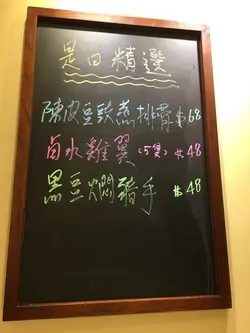 是日精選
陳皮豆豉蒸排骨 $68
卤水雞翼(5隻) $48
黑豆燜豬手 $48